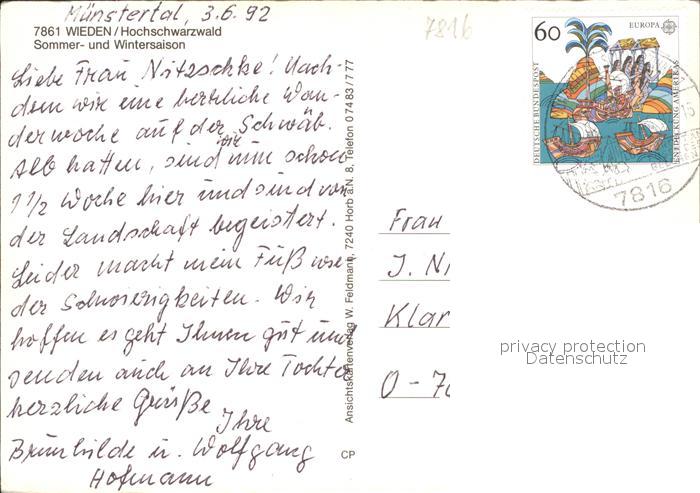 Münstertal, 3.6.92
7816
7861 WIEDEN / Hochschwarzwald
Sommer- und Wintersaison
Liebe Frau Nitzschke! Nach-
dem wir eine herrliche Wan-
derwoche auf der Schwäb.
Alb hatten, sind wir nun schon
1 1/2 Woche hier und sind von
der Landschaft begeistert.
Leider macht mein Fuß wie-
der Schwierigkeiten. Wir
hoffen es geht Ihnen gut und
senden auch an Ihre Tochter
herzliche Grüße
Ihre
Brunhilde u. Wolfgang
Hofmann
Ansichtskartenverlag W. Feldmann, 7240 Horb a.N. 8, Telefon 0 74 83 / 7 77
CP
60
EUROPA
DEUTSCHE BUNDESPOST
ENTDECKUNG AMERIKAS
7816
Frau
J. Ni
Klar
O-70
privacy protection
Datenschutz